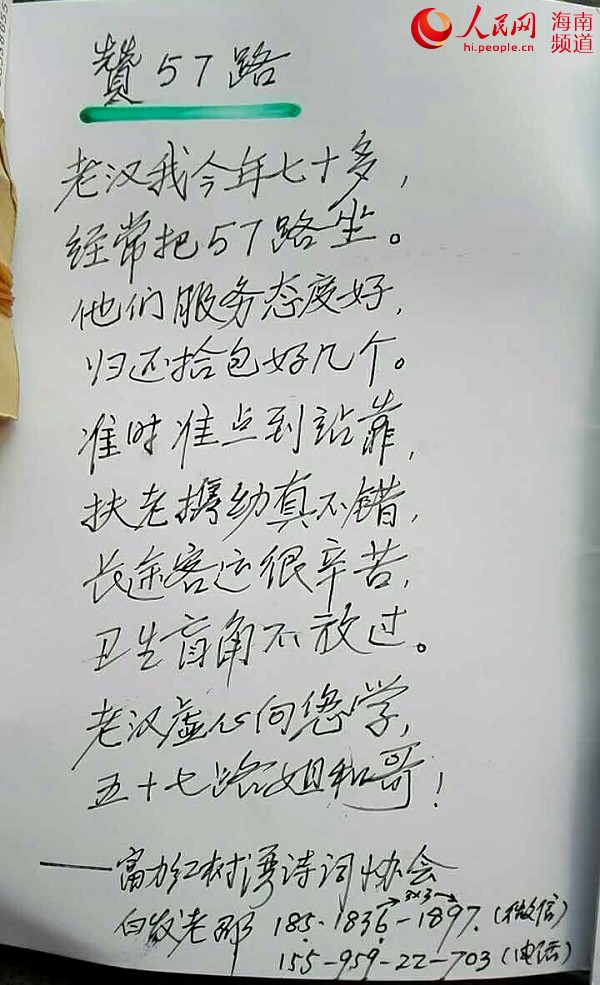 人民网
hi.people.cn
海南
频道
赞57路
老汉我今年七十多,
经常把57路坐。
他们服务态度好,
归还拾包好几个。
准时准点到站靠,
扶老携幼真不错,
长途客运很辛苦,
卫生盲角不放过。
老汉虚心向您学,
五十七路姐和哥!
——富力红树湾诗词协会
老邢 185-1836-1897.(微信)
155-959-22-703(电话)